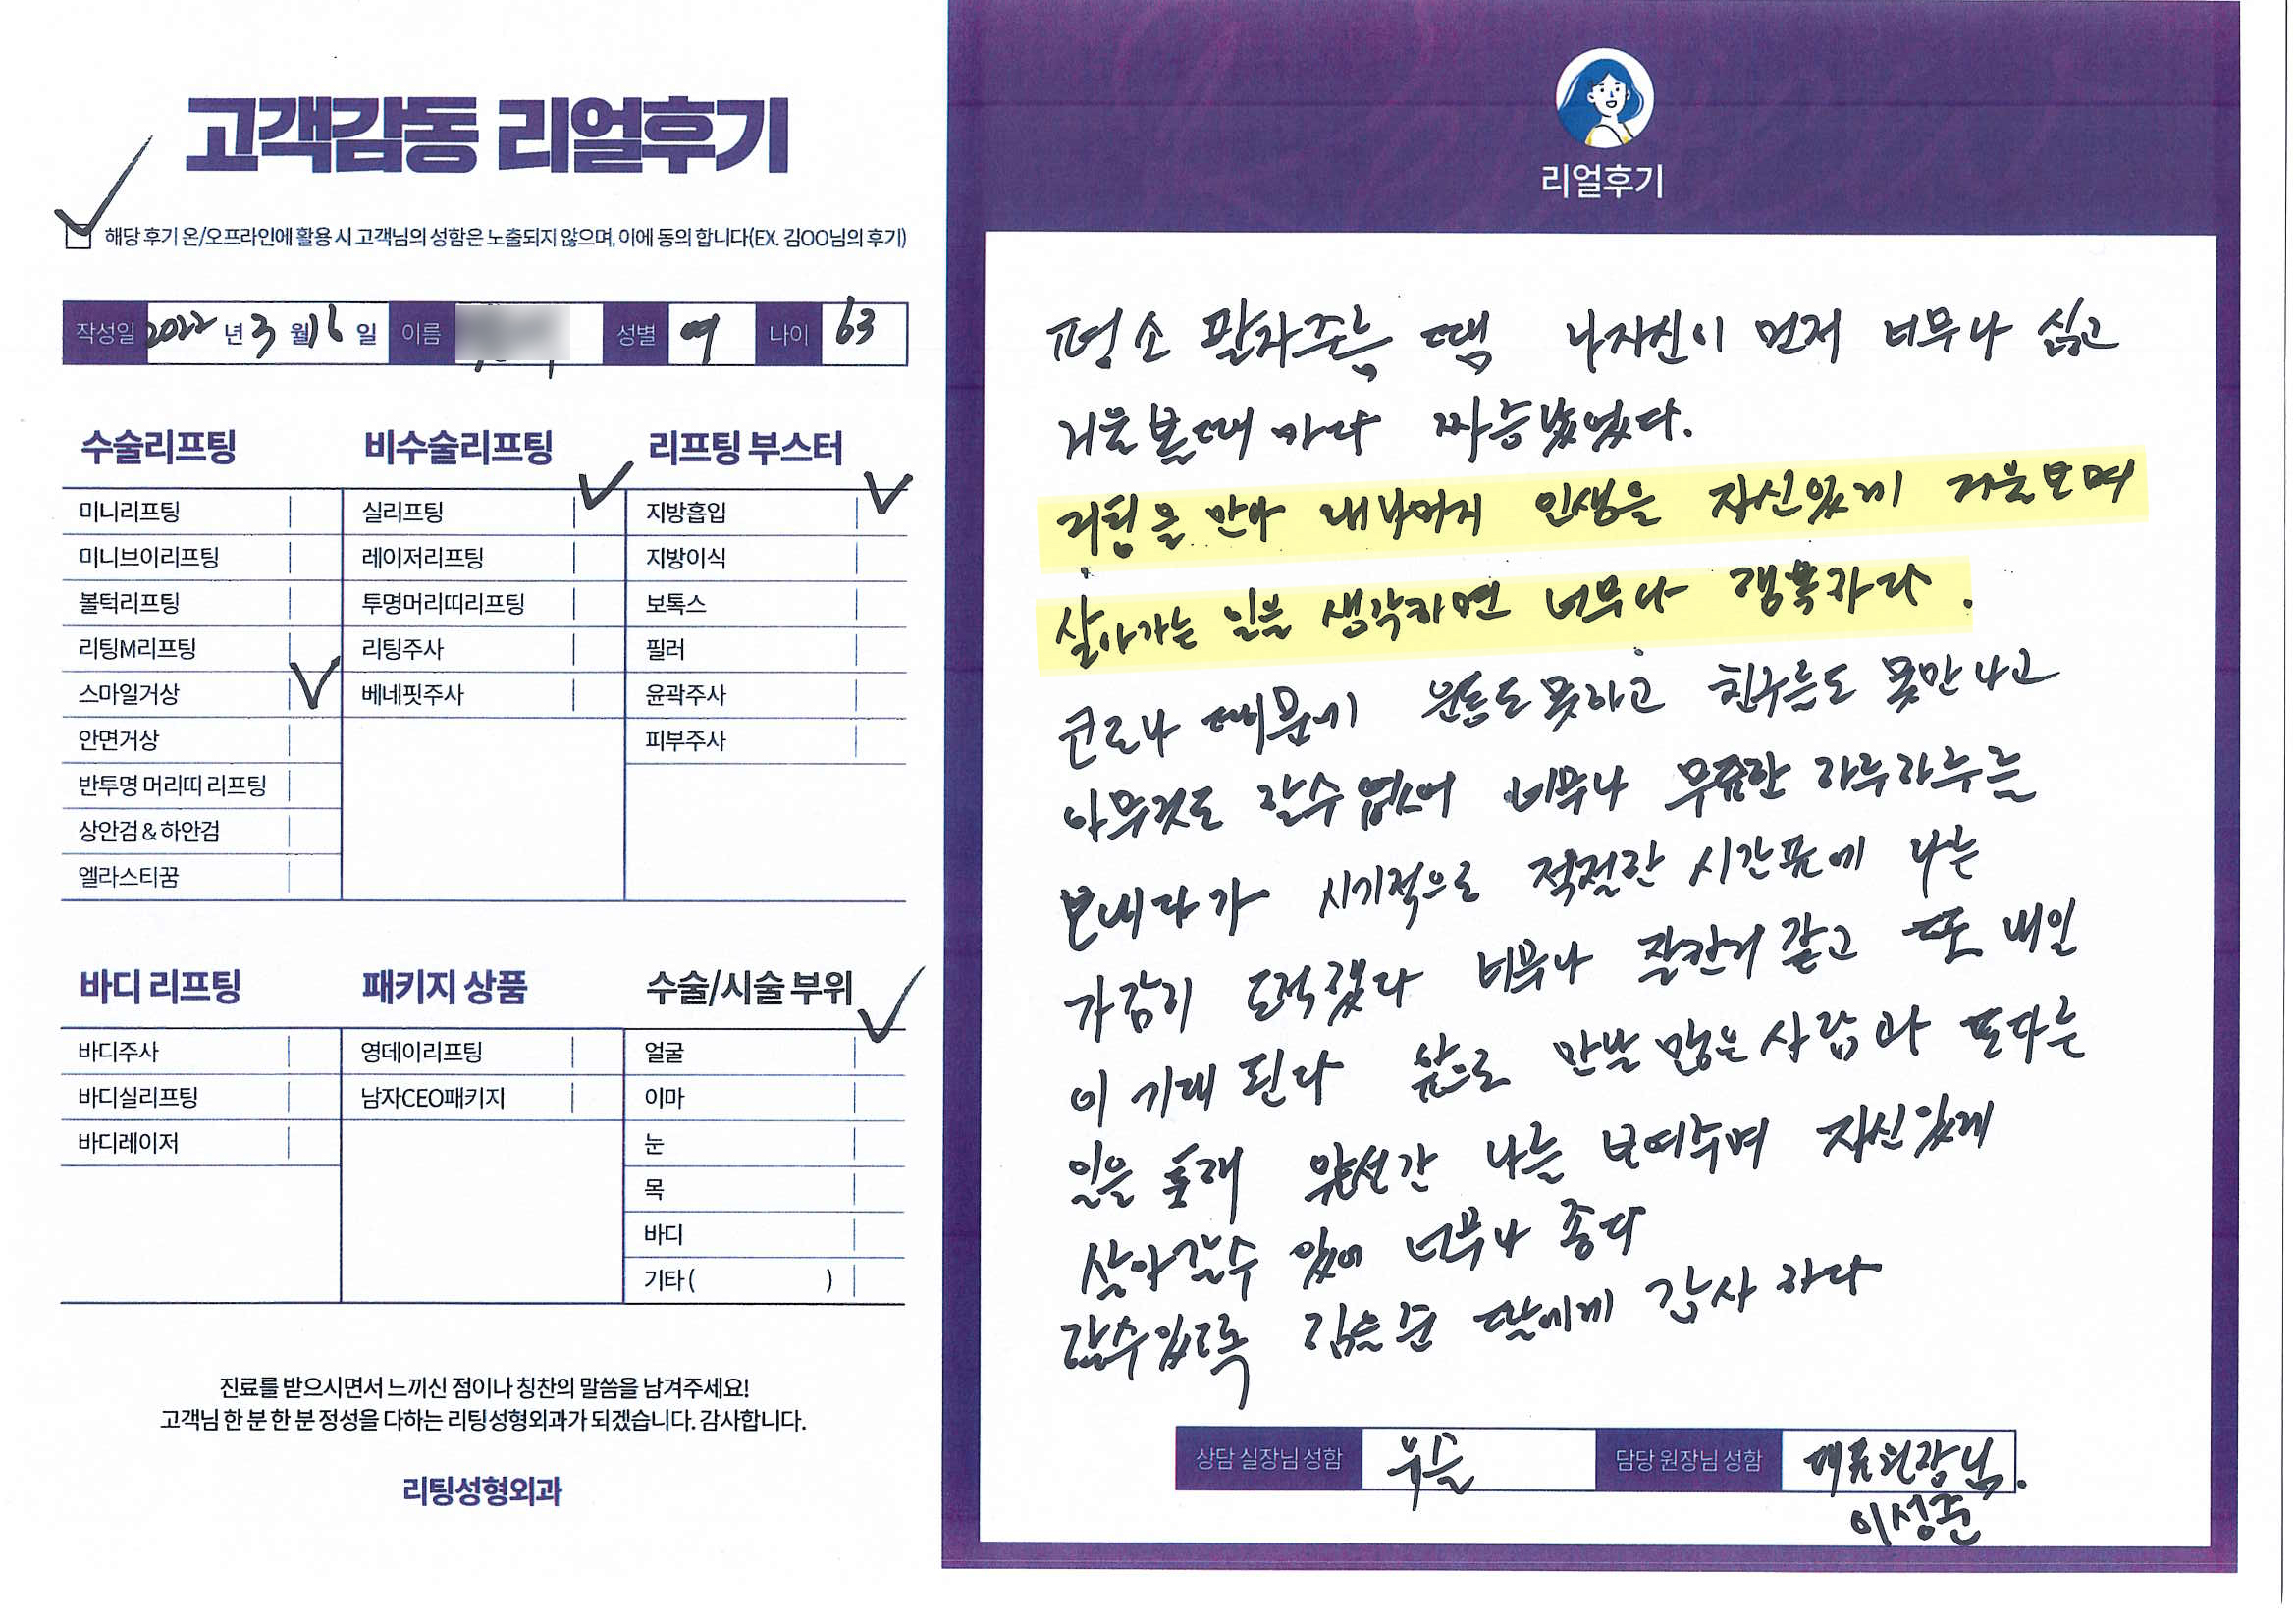 고객감동 리얼후기
해당 후기 온/오프라인에 활용 시 고객님의 성함은 노출되지 않으며, 이에 동의 합니다(EX. 김OO님의 후기)
작성일 2022 년 3 월 16 일 이름 성별 여 나이 63
수술리프팅
미니리프팅
미니브이리프팅
볼턱리프팅
리팅M리프팅
스마일거상
안면거상
반투명 머리띠 리프팅
상안검 & 하안검
엘라스티꿈
비수술리프팅
실리프팅
레이저리프팅
투명머리띠리프팅
리팅주사
베네핏주사
리프팅 부스터
지방흡입
지방이식
보톡스
필러
윤곽주사
피부주사
바디 리프팅
바디주사
바디실리프팅
바디레이저
패키지 상품
영데이리프팅
남자CEO패키지
수술/시술 부위
얼굴
이마
눈
목
바디
기타 ( )
진료를 받으시면서 느끼신 점이나 칭찬의 말씀을 남겨주세요!
고객님 한 분 한 분 정성을 다하는 리팅성형외과가 되겠습니다. 감사합니다.
리팅성형외과
리얼후기
평소 팔자주름 땜 나자신이 먼저 너무나 싫고
거울볼때 마다 짜증났었다.
리팅을 만나 내나머지 인생을 자신있게 거울보며
살아가는 일을 생각하면 너무나 행복하다.
코로나 때문에 운동도 못하고 친구들도 못만나고
아무것도 할수 없어 너무나 무료한 하루하루를
보내다가 시기적으로 적절한 시간표에 나는
과감히 도전했다 너무나 잘한거 같고 또 내일
이 기대 된다 앞으로 만날 많은 사람과 또다른
일을 통해 나를 보여주며 자신있게
살아갈수 있어 너무나 좋다
할수있도록 딸에게 감사 하다
상담 실장님 성함 담당 원장님 성함 대표원장님.
이성준